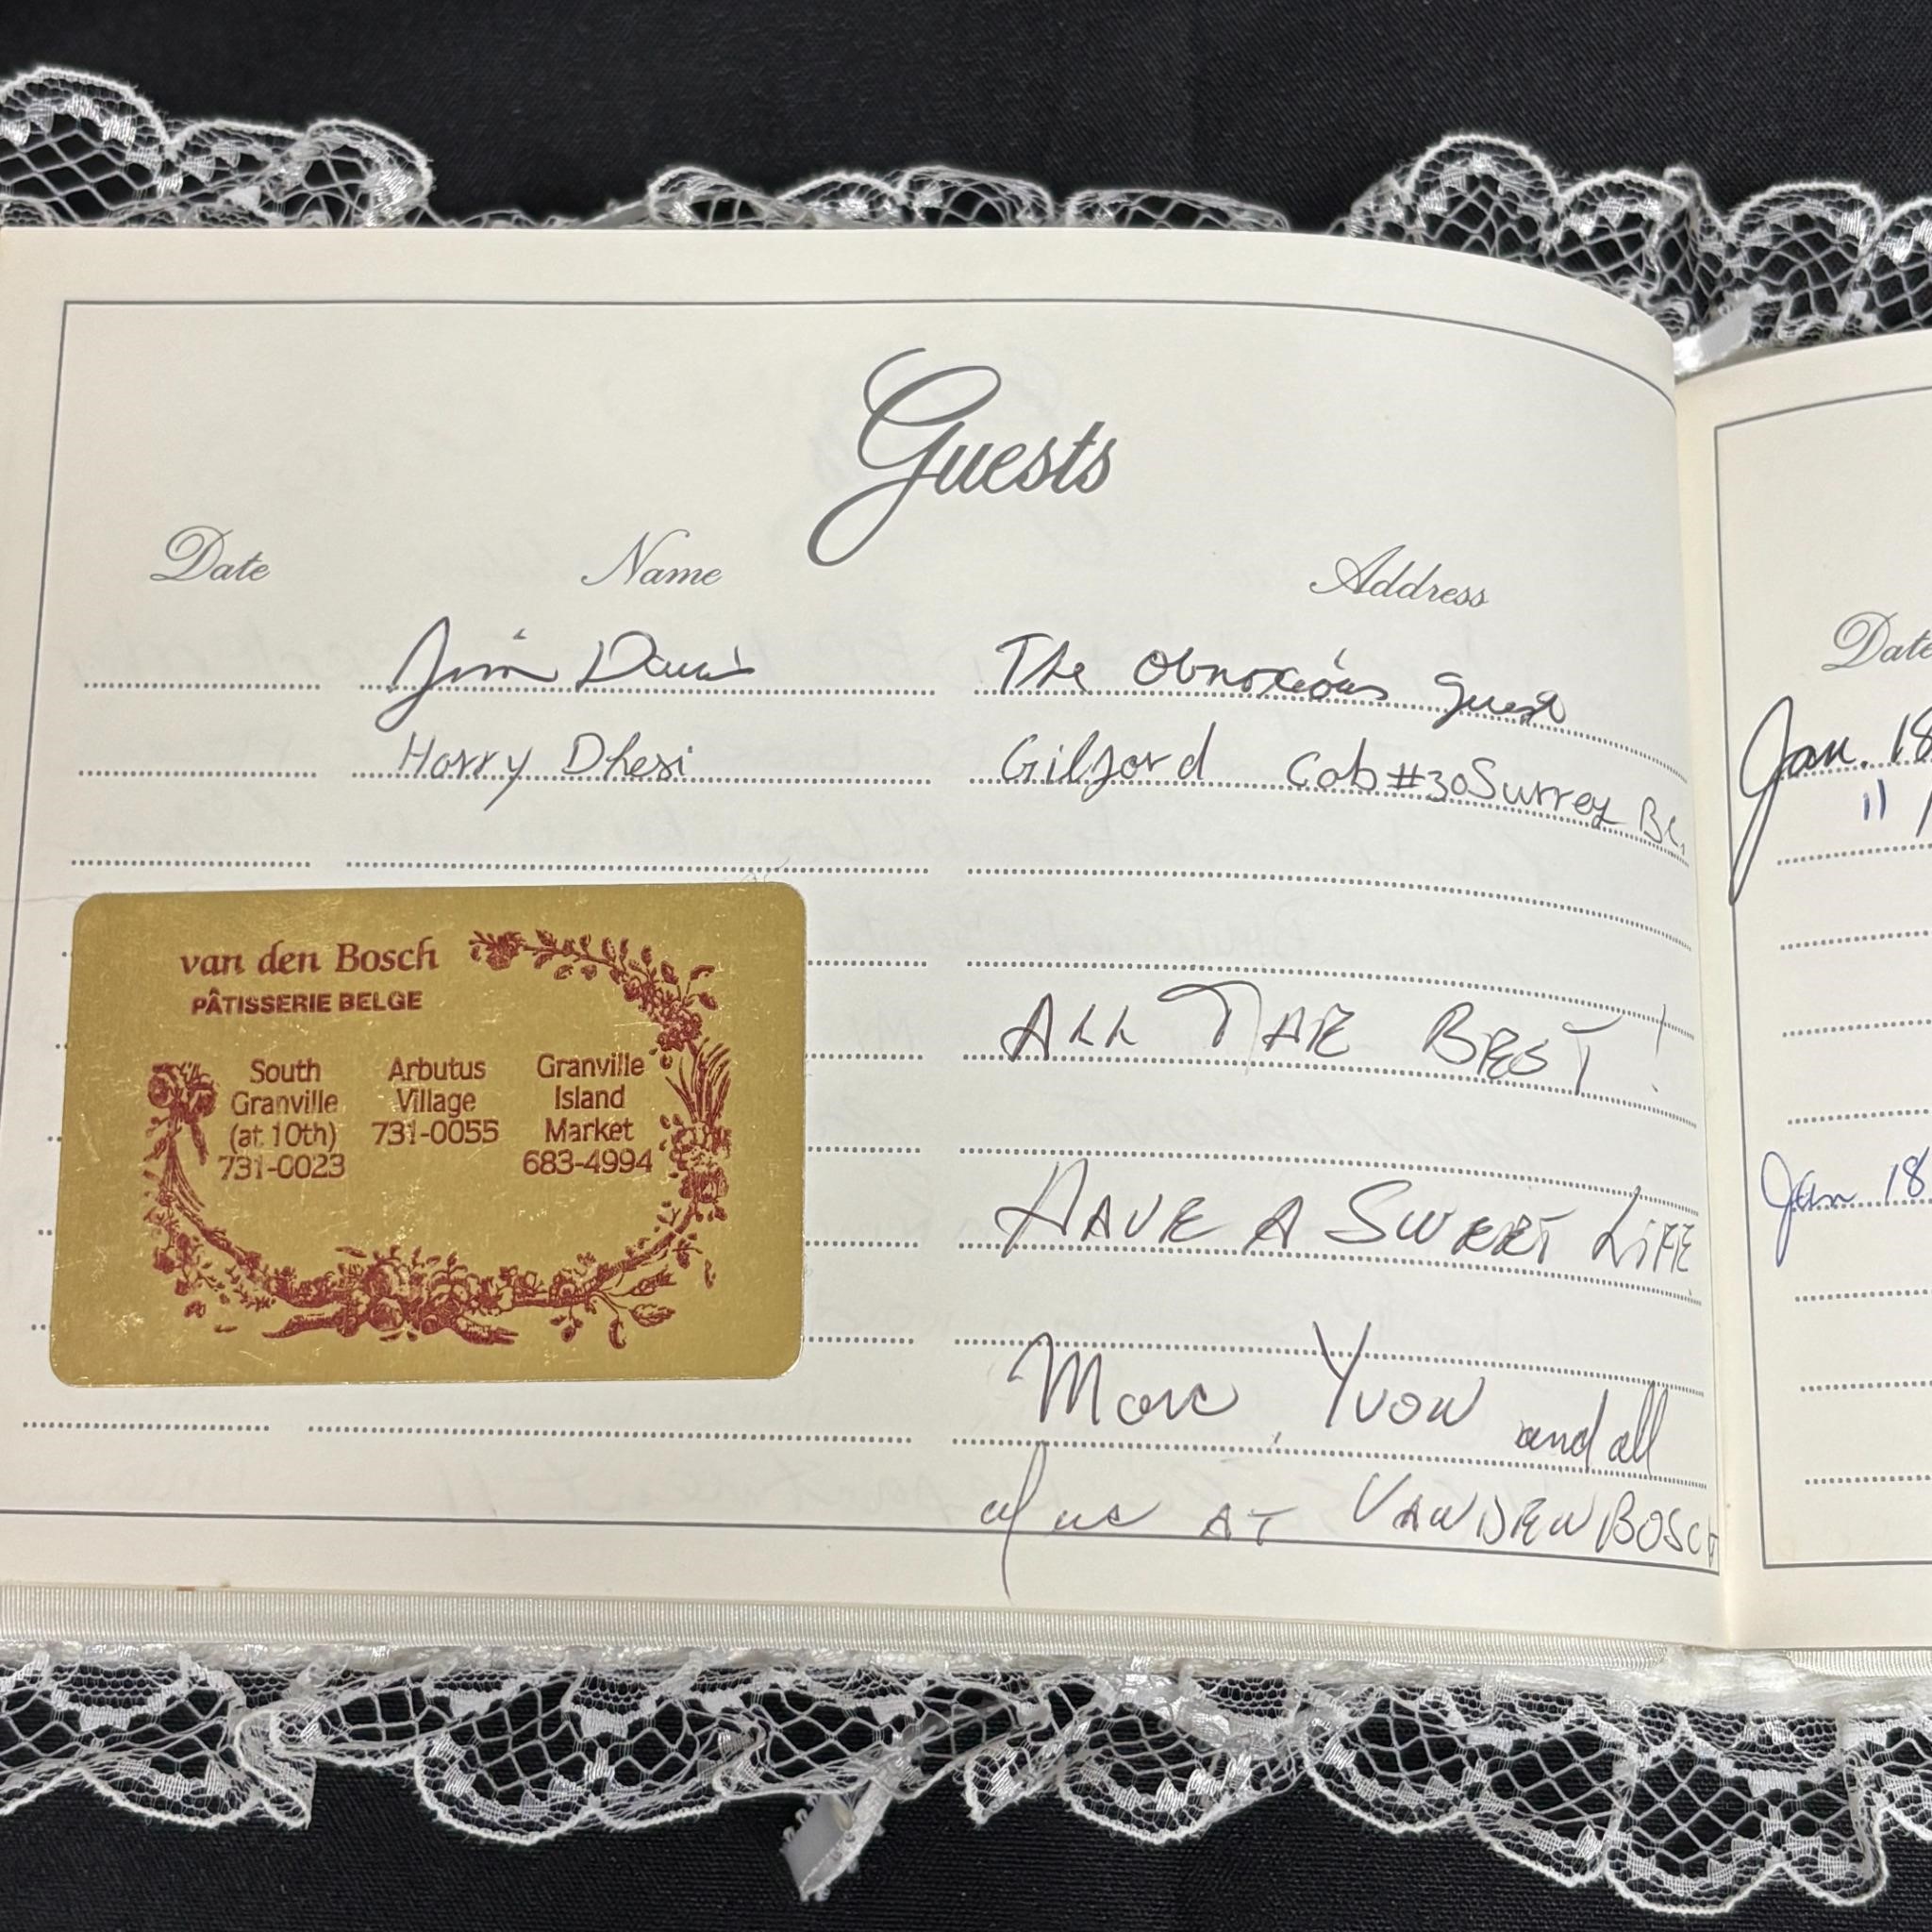 Guests
Date Name Address
Jim Davis The Obnoxious guest
Harry Dhesi Gilford Cab #30 Surrey BC.
van den Bosch
PÂTISSERIE BELGE
South
Granville
(at 10th)
731-0023
Arbutus
Village
731-0055
Granville
Island
Market
683-4994
ALL THE BEST!
HAVE A SWEET LIFE
Marc, Yvon and all
of us AT VANDENBOSCH
Date
Jan. 18
"
Jan 18